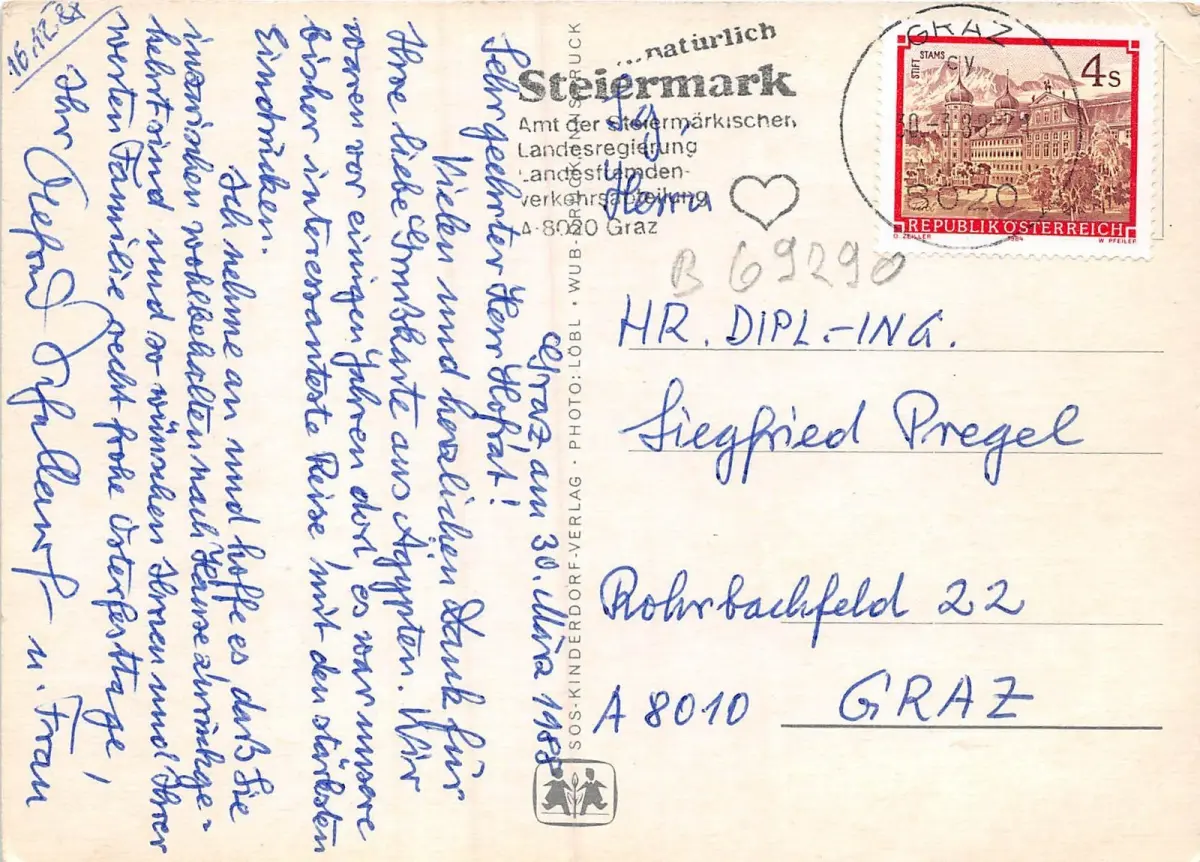 16.12.87
Graz, am 30. März 1988
Sehr geehrter Herr Hofrat!
Vielen und herzlichen Dank für
Ihre liebe Grußkarte aus Ägypten. Wir
waren vor einigen Jahren dort, es war unsere
bisher interessanteste Reise, mit den stärksten
Eindrücken.
Ich nehme an und hoffe es, daß Sie
inzwischen wohlbehalten nach Hause zurückge-
kehrt sind und so wünschen Ihnen und Ihrer
werten Familie recht frohe Osterfesttage,
Ihr
u. Frau
SOS-KINDERDORF-VERLAG · PHOTO: LÖBL · WUB-DRUCK INNSBRUCK
...natürlich
Steiermark
Amt der Steiermärkischen
Landesregierung
Landesfremden-
verkehrsabteilung
A-8020 Graz
GRAZ
8020
STIFT STAMS
4 S
REPUBLIK ÖSTERREICH
O. ZEILLER 1984 W. PFEILER
Herrn
B 69290
HR. DIPL.-ING.
Siegfried Pregel
Rohrbachfeld 22
A 8010 GRAZ